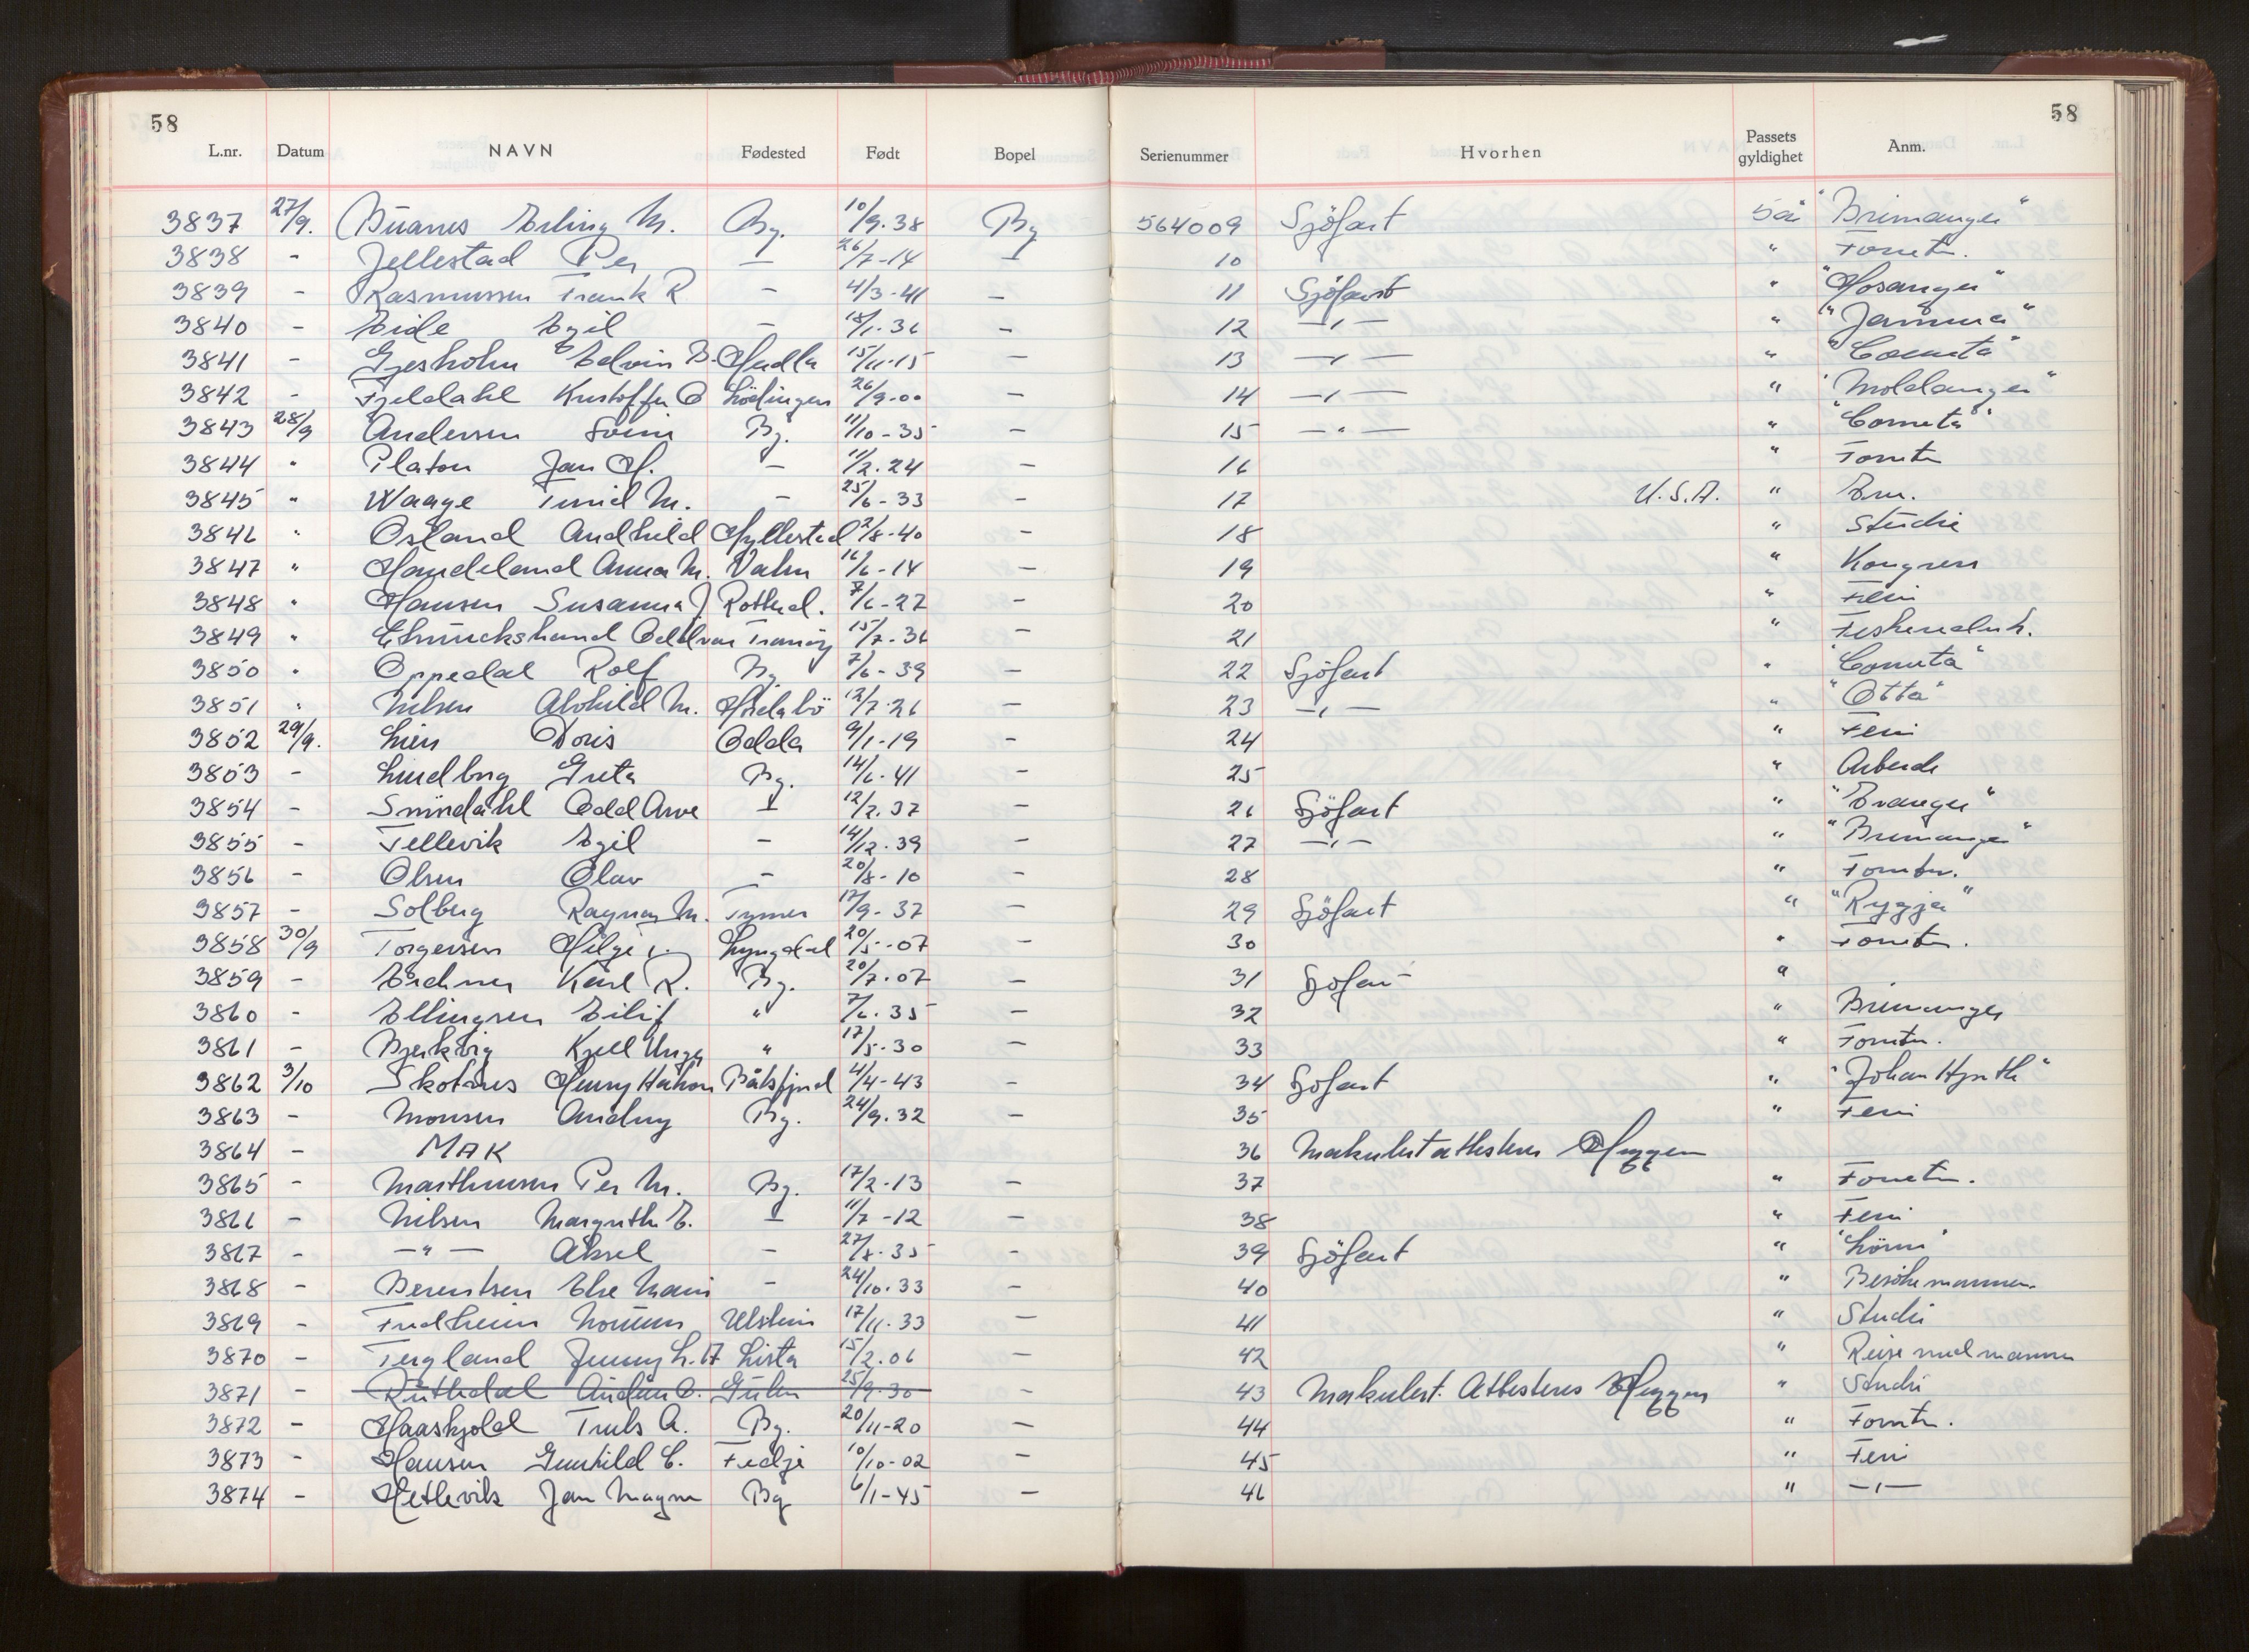 58 58
L.nr. Datum NAVN Fødested Født Bopel Serienummer Hvorhen Passets gyldighet Anm.
3837 27/9. Buanes Erling M. Bg. 10/9.38 Bg 564009 Sjöfart 5 år "Brimanger"
3838 - Jellestad Per - 26/7-14 - 10 " Forretn.
3839 - Rasmussen Frank R - 4/3-41 - 11 Sjöfart " "Hosanger"
3840 - Eide Egil - 18/1.36 - 12 -"- "
3841 - Gjesholm Edvin B. Hudla 15/11-15 - 13 -"- " "Cometa"
3842 - Fjeldahl Kristoffer O Lödingen 26/9-00 - 14 -"- " "Moldanger"
3843 28/9 Andersen Svein Bg. 11/10-35 - 15 -"- " "Cometa"
3844 " Platou Jan H. - 11/2.24 - 16 " Forretn
3845 " Waage Turid M. - 25/6-33 - 17 U.S.A. "
3846 " Osland Audhild Hyllestad 2/8-40 - 18 " Studie
3847 " Handeland Anna M. 16/6-14 - 19 " Kongress
3848 " Hansen Susanna J 7/6-27 - 20 " Ferie
3849 " Oddvar Tranöy 15/7.36 - 21 "
3850 " Oppedal Rolf Bg 7/6-39 - 22 Sjöfart " "Cometa"
3851 " Nilsen M. 12/7.26 - 23 -"- " "Otta"
3852 29/9. Lien Doris Odda 9/1-19 - 24 " Ferie
3853 - Lindberg Greta Bg. 14/6.41 - 25 " Arbeide
3854 - Odd Arve - 12/2.37 - 26 Sjöfart " "Evanger"
3855 - Tellevik Egil - 14/12.39 - 27 -"- " "Brimanger"
3856 - Olsen Olav - 20/8-10 - 28 " Forretn.
3857 - Solberg Ragnar M. 17/9-37 - 29 Sjöfart " "Rygja"
3858 30/9 Torgersen Helge Lyngdal 20/5-07 - 30 " Forretn.
3859 - Karl R. Bg. 20/7.07 - 31 Sjöfart "
3860 - Ellingsen Eilif " 7/6.35 - 32 " Brimanger
3861 - Bjerkvig Kjell " 17/5-30 - 33 " Forretn.
3862 3/10 Henry Håkon Båtsfjord 4/4-43 - 34 Sjöfart "
3863 - Monsen Audny Bg. 24/9.32 - 35 " Ferie
3864 - MAK 36 Makulert attesteres
3865 - Marthinusen Per M. Bg. 17/2-13 - 37 " Forretn.
3866 - Nilsen Margrethe E. - 11/7-12 - 38 " Ferie
3867 - -"- Aksel - 27/8.35 - 39 Sjöfart "
3868 - Berentsen Else Marie - 24/10.33 - 40 " Besöke mannen
3869 - Ulstein 17/11.33 - 41 " Studie
3870 - Tergland Jenny L. Lista 15/2.06 - 42 " Reise med mannen
3871 - Ruthedal Audun O. Gulen 25/9.30 - 43 Makulert. Attesteres " Studie
3872 - Haaskjold Truls A. Bg. 20/11-20 - 44 " Forretn.
3873 - Hansen Gunhild C. Fedje 10/10-02 - 45 " Ferie
3874 - Hetlevik Jan Magne Bg 6/1-45 - 46 " -"-